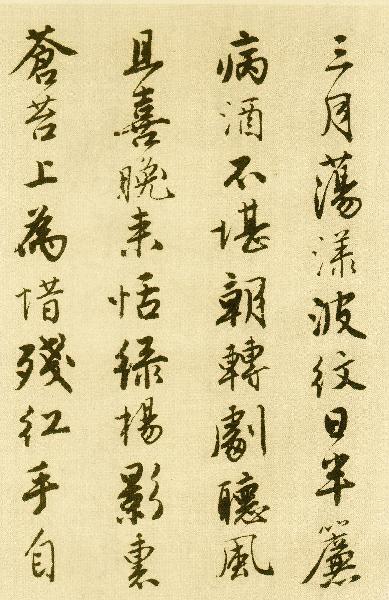 三月蕩漾波紋日半簾
病酒不堪朝轉劇聽風
且喜晚來恬綠楊影裏
蒼苔上為惜殘紅手自